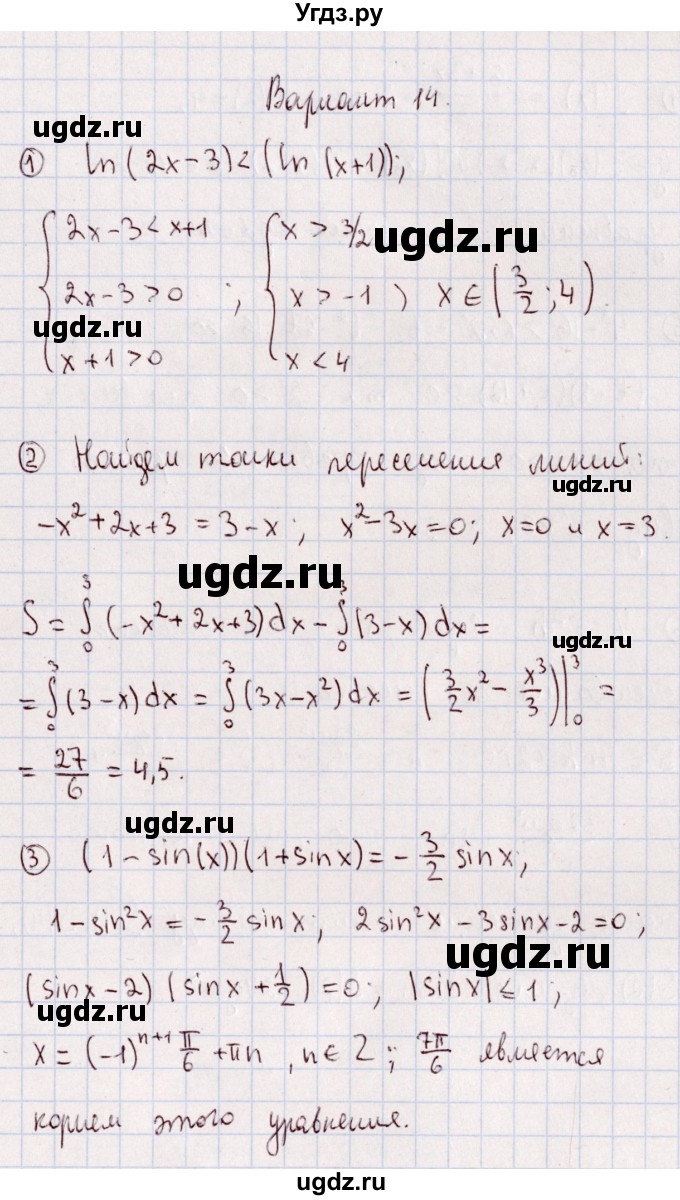 Угдз.ру
Вариант 14.
ugdz.ru
① ln(2x-3)<(ln(x+1));
{2x-3<x+1 {x > 3/2 ugdz.ru
2x-3>0 ; x > -1 ) x ∈ (3/2 ; 4).
ugdz.ru
x+1>0 x < 4
② Найдем точки пересечения линий:
ugdz.ru
-x²+2x+3 = 3-x; x²-3x=0; x=0 и x=3.
ugdz.ru
S = ∫₀³ (-x²+2x+3)dx - ∫₀³ (3-x)dx =
ugdz.ru
= ∫₀³ (3-x)dx = ∫₀³ (3x-x²)dx = (3/2 x² - x³/3)|₀³ =
ugdz.ru
= 27/6 = 4,5.
ugdz.ru
③ (1-sin(x))(1+sinx) = -3/2 sinx;
1-sin²x = -3/2 sinx; 2sin²x - 3sinx - 2 = 0;
ugdz.ru
(sinx-2)(sinx+1/2) = 0; |sinx| ≤ 1;
ugdz.ru
x = (-1)ⁿ⁺¹ π/6 + πn, n ∈ Z; 7π/6 является
корнем этого уравнения.
ugdz.ru